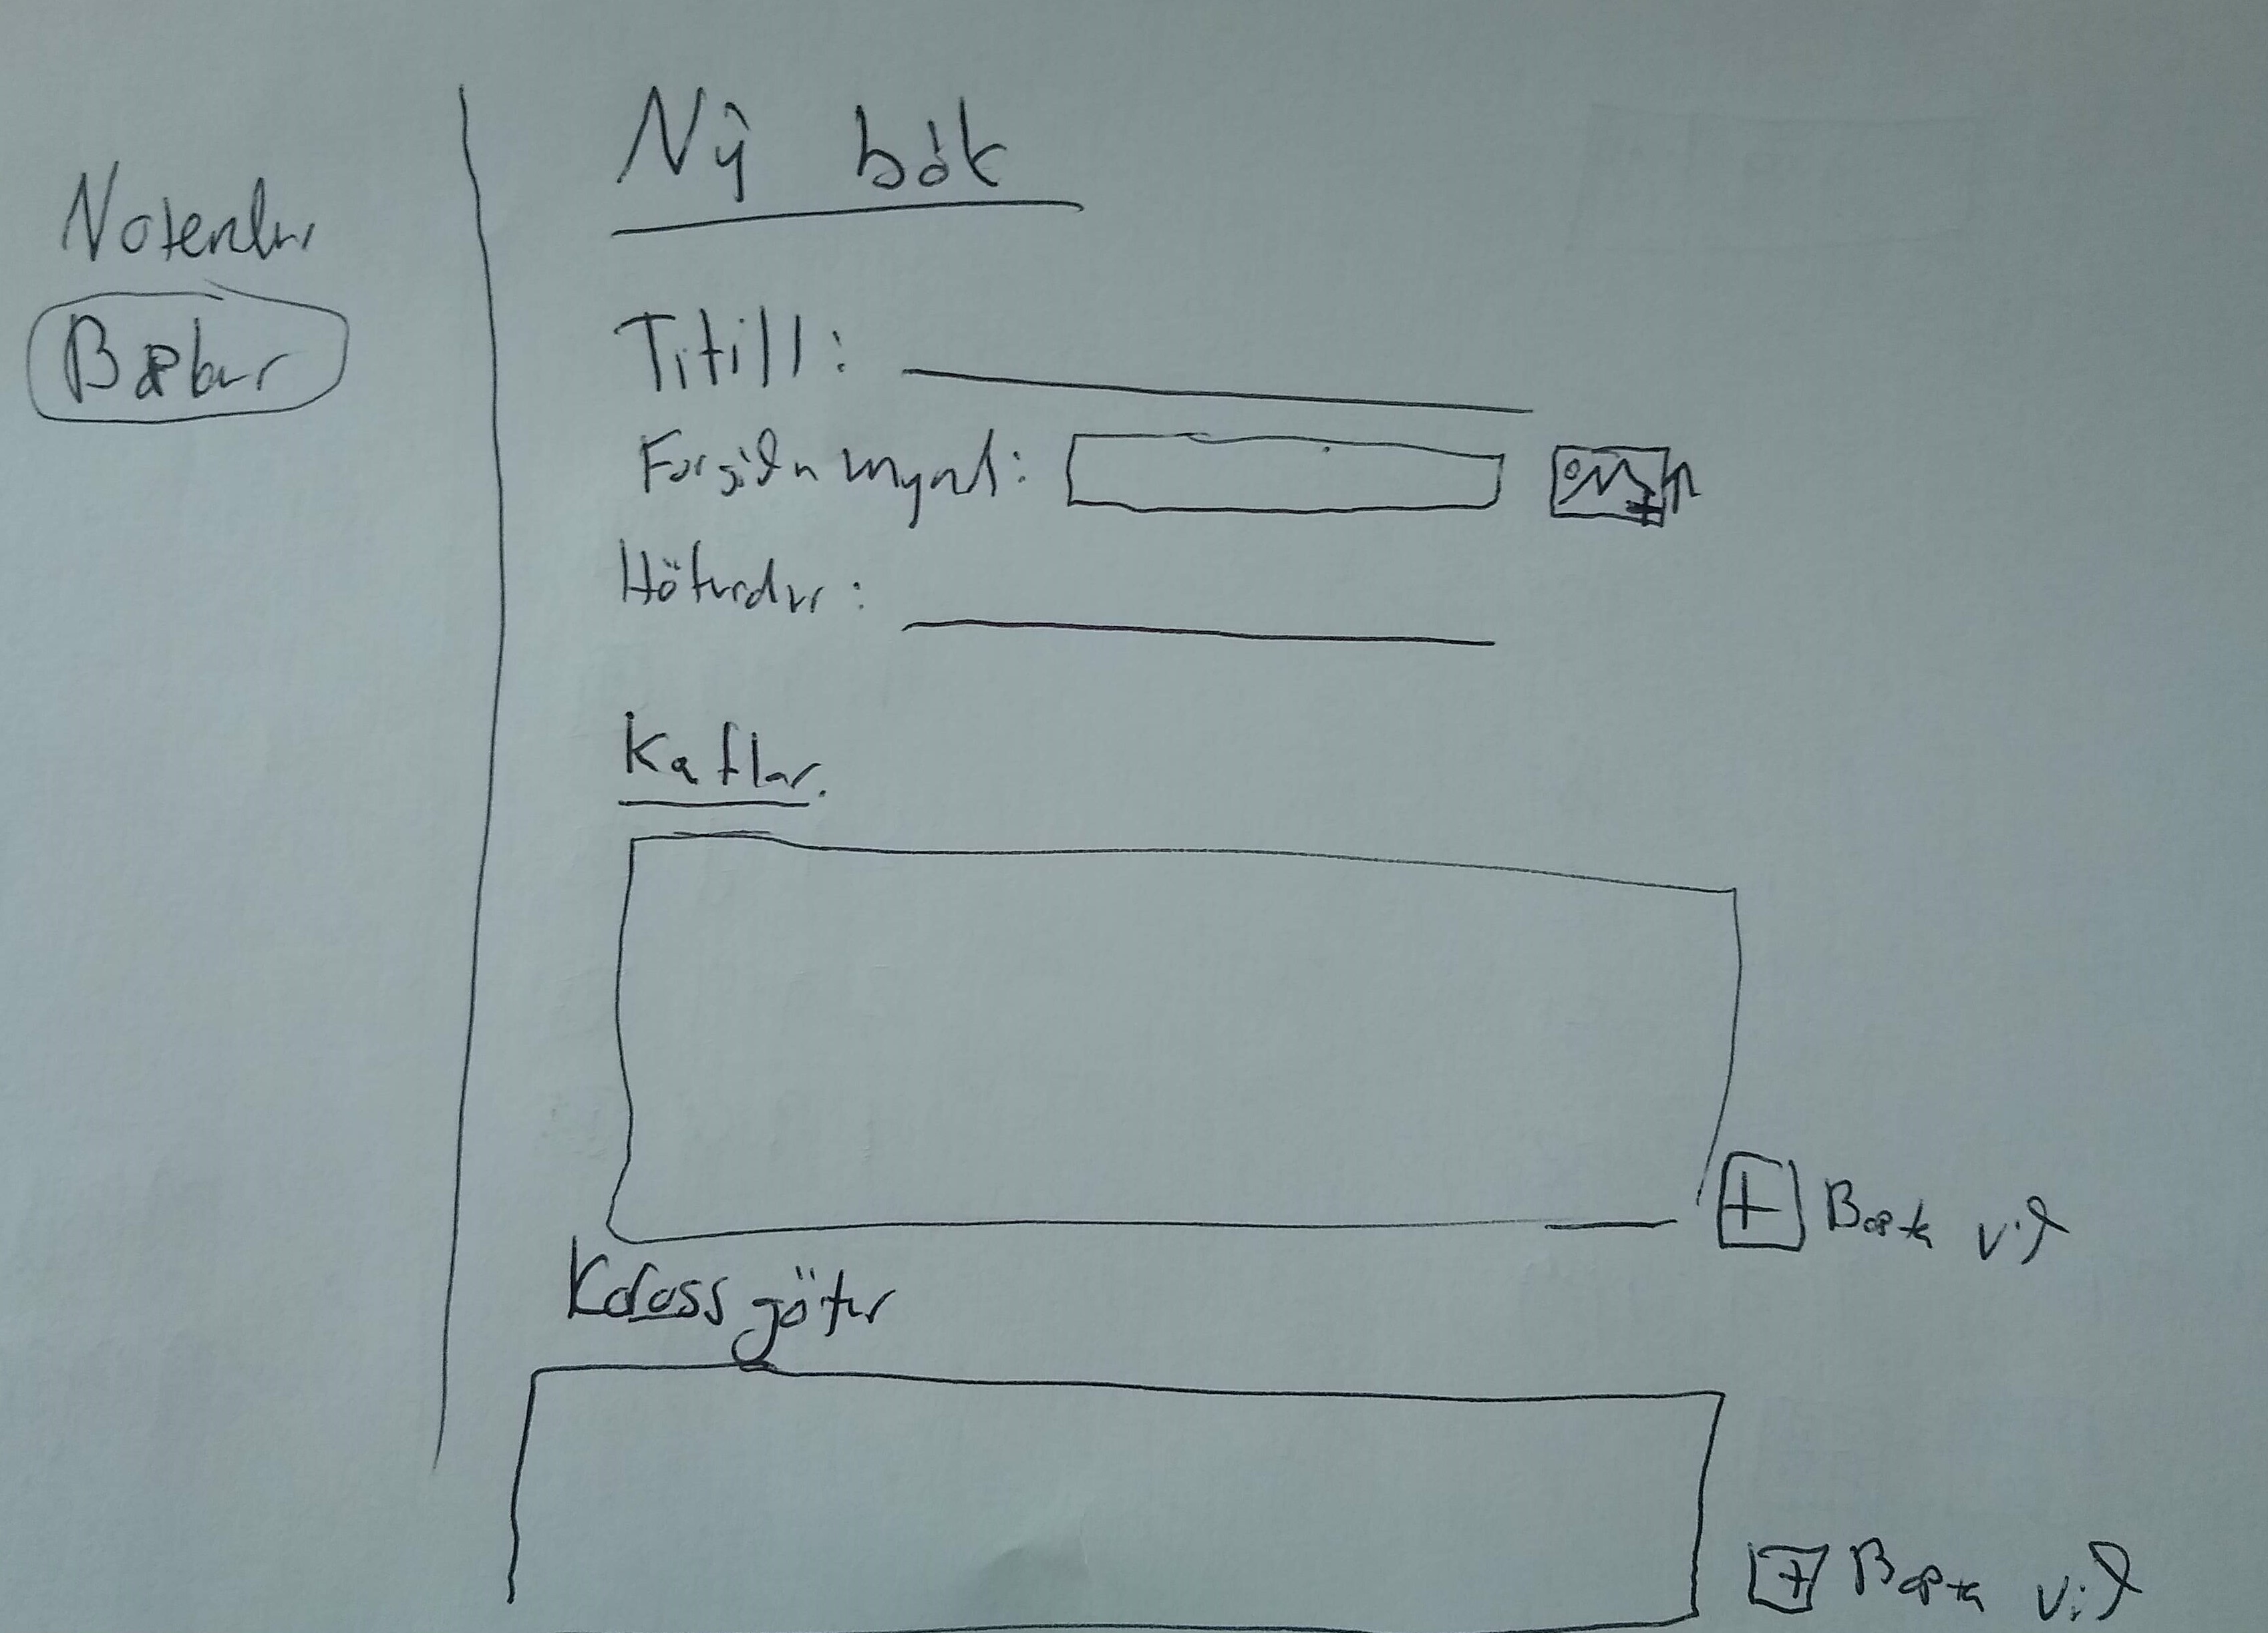 Notendur
Bækur
Ný bók
Titill:
Forsíðu mynd:
Höfundur:
Kaflar.
Bæta við
Krossgötur
Bæta við